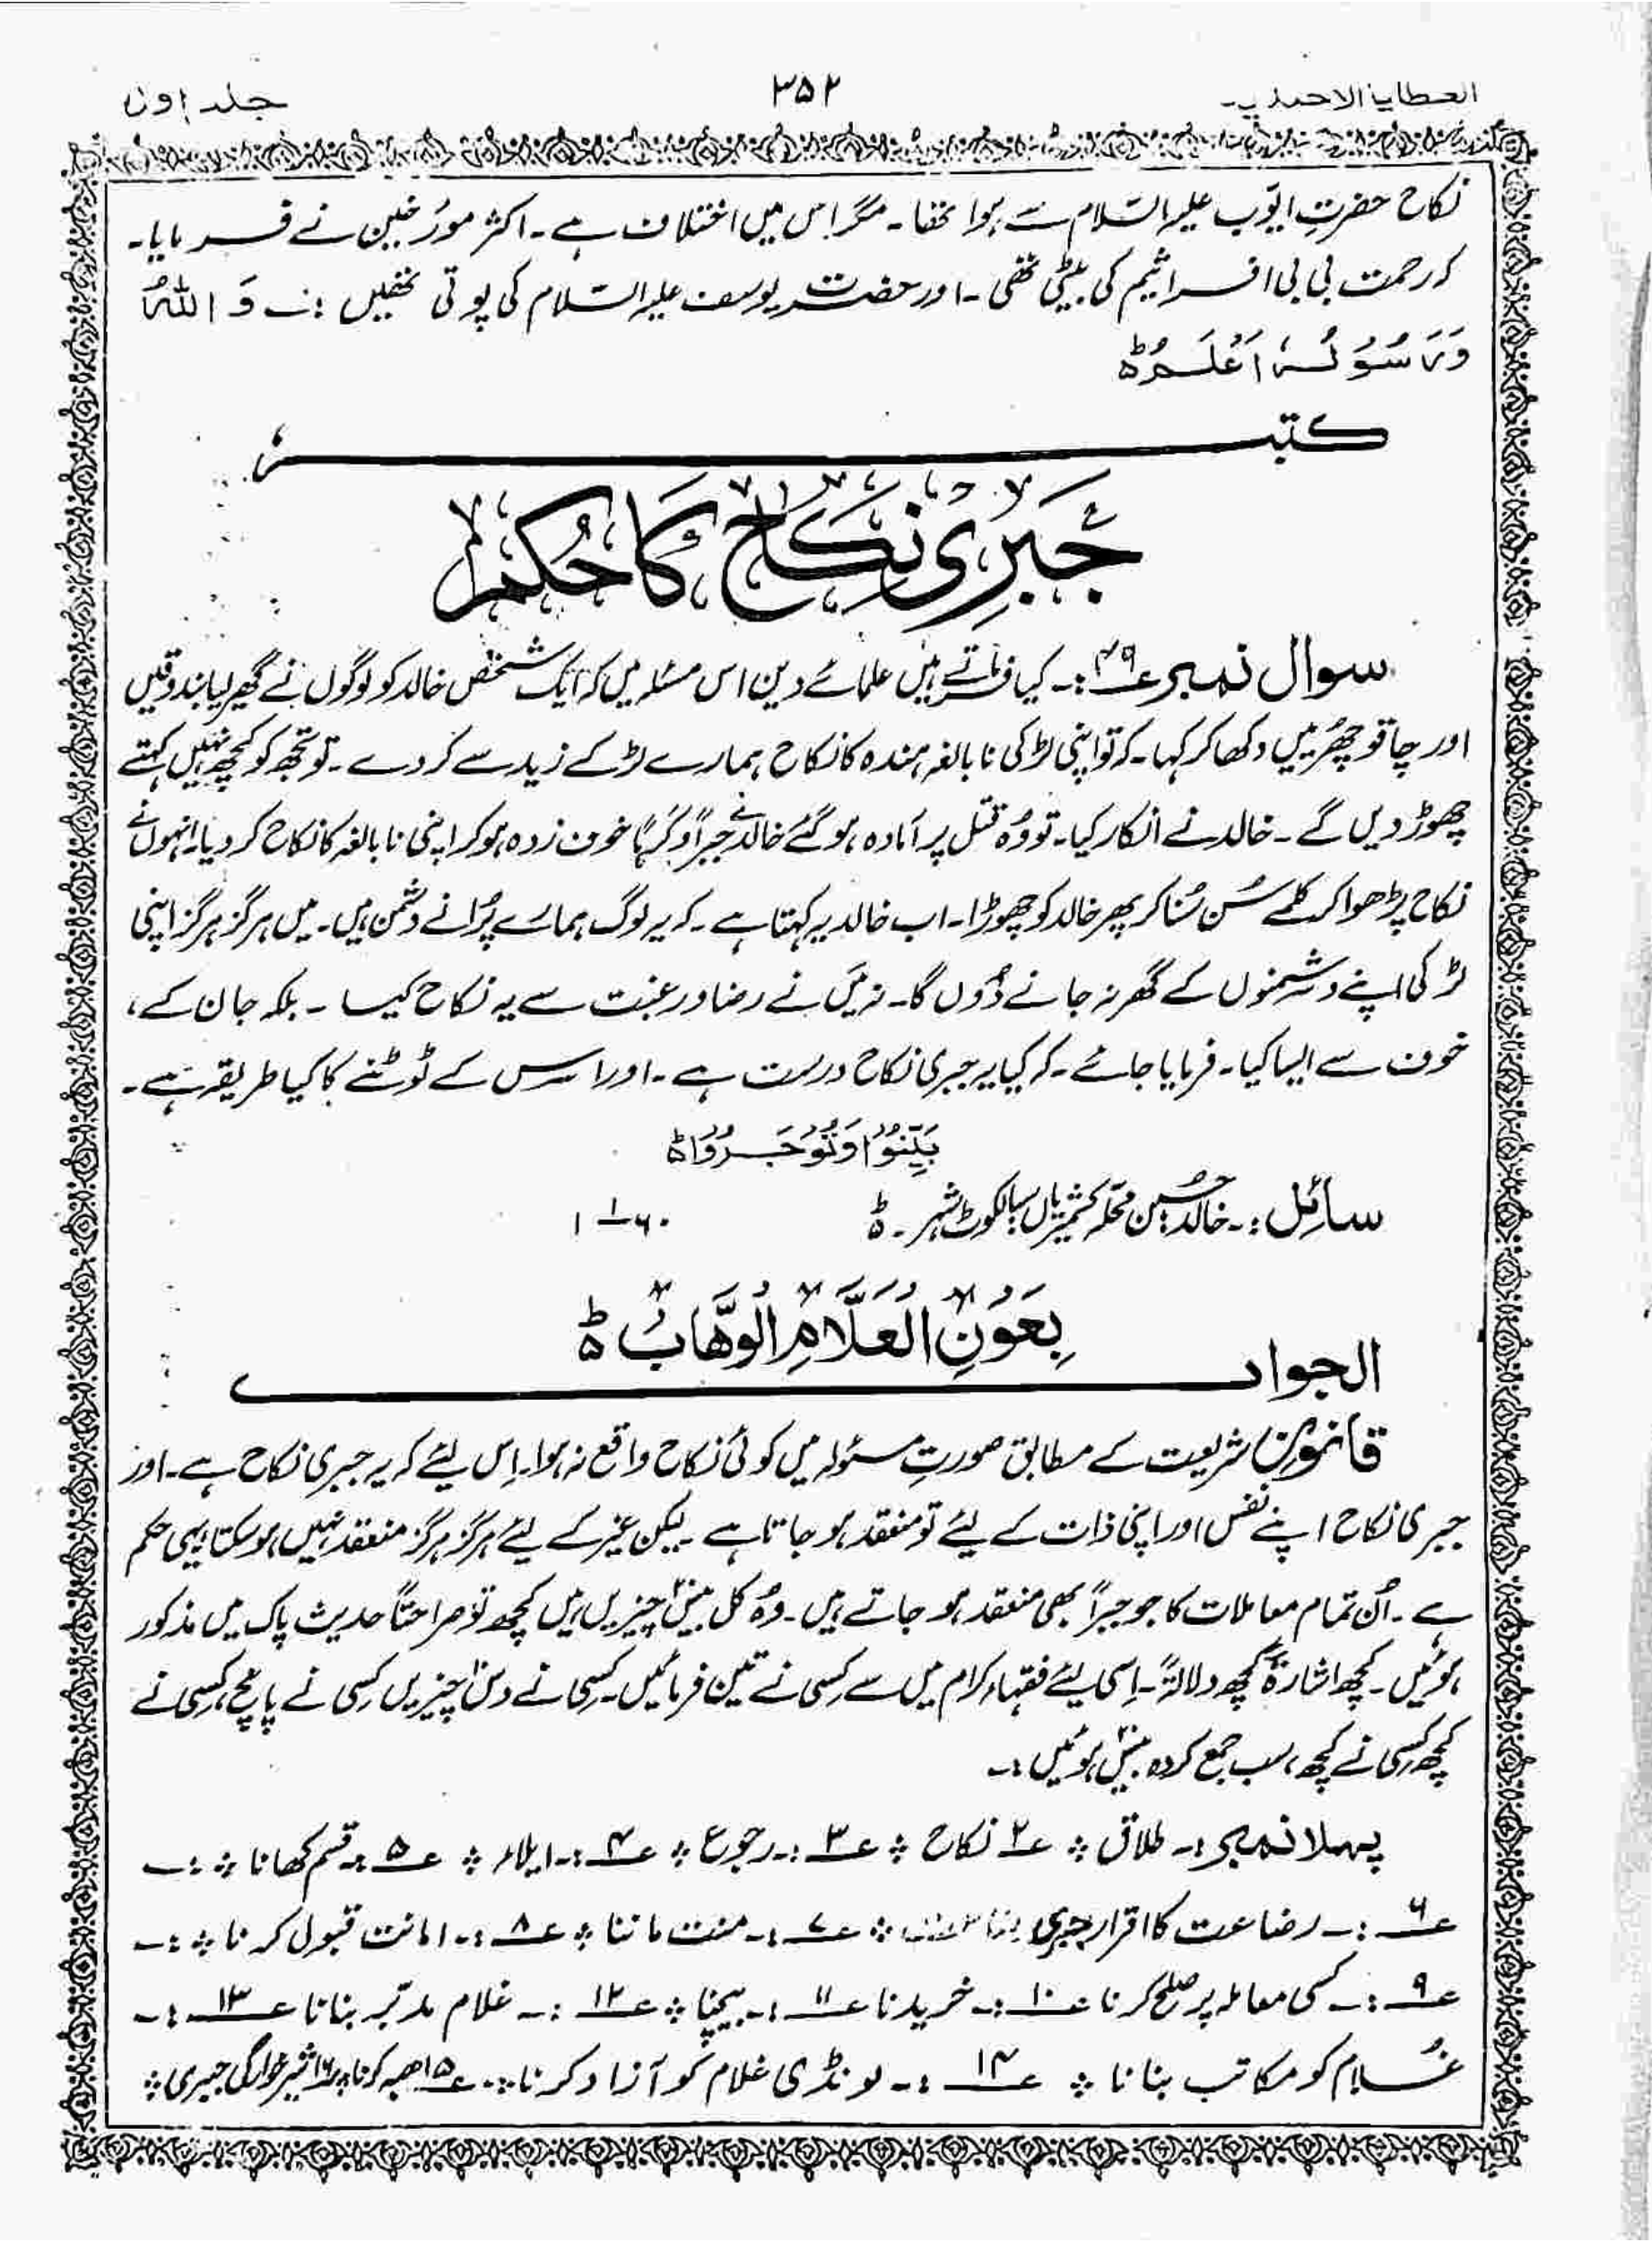 العطایا الاحمدیہ ۳۵۲ جلد اول
نکاح حضرتِ ایّوب علیہ السّلام سے ہوا تھا۔ مگر اس میں اختلاف ہے۔ اکثر مورخین نے فرمایا۔
کہ رحمت بی بی افسرائیم کی بیٹی تھی۔ اور حضرت یوسف علیہ السّلام کی پوتی تھیں :۔ وَ اللہُ
وَرَسُوْلُہٗ اَعْلَمُ ؕ
کتبہٗ
جَبَرِی نِکَاح کَا حُکْم
سوال نمبر ۴۹:۔ کیا فرماتے ہیں علمائے دین اس مسئلہ میں کہ ایک شخص خالد کو لوگوں نے گھیر لیا بندوقیں
اور چاقو چھریں دکھا کر کہا۔ کہ تو اپنی لڑکی نابالغہ ہندہ کا نکاح ہمارے لڑکے زید سے کر دے۔ تو تجھ کو کچھ نہیں کہتے
چھوڑ دیں گے۔ خالد نے انکار کیا۔ تو وُہ قتل پر آمادہ ہو گئے خالد نے جبراً و کرہاً خوف زدہ ہو کر اپنی نابالغہ کا نکاح کر دیا۔ انہوں نے
نکاح پڑھوا کر کلمے سُن سُنا کر پھر خالد کو چھوڑا۔ اب خالد یہ کہتا ہے۔ کہ یہ لوگ ہمارے پُرانے دشمن ہیں۔ میں ہرگز ہرگز اپنی
لڑکی اپنے دشمنوں کے گھر نہ جانے دُوں گا۔ نہ میَں نے رضا و رغبت سے یہ نکاح کیا۔ بلکہ جان کے،
خوف سے ایسا کیا۔ فرمایا جائے۔ کہ کیا یہ جبری نکاح درست ہے۔ اور اس کے ٹوٹنے کا کیا طریقہ ہے۔
بَیِّنُوْا وَتُوْجَرُوْا ؕ
سائل:۔ خالد حسین محلہ کشمیریاں سیالکوٹ شہر۔ ؕ ۶۰-۱-۱
بِعَوْنِ الْعَلَّامِ الْوَھَّابُ ؕ
الجواب
قانونِ شریعت کے مطابق صورتِ مسئولہ میں کوئی نکاح واقع نہ ہوا۔ اِس لیئے کہ یہ جبری نکاح ہے۔ اور
جبری نکاح اپنے نفس اور اپنی ذات کے لیئے تو منعقد ہو جاتا ہے۔ لیکن غیر کے لیئے ہرگز ہرگز منعقد نہیں ہو سکتا یہی حکم
ہے۔ اُن تمام معاملات کا جو جبراً بھی منعقد ہو جاتے ہیں۔ وُہ کل بیس چیزیں ہیں کچھ تو صراحتاً حدیث پاک میں مذکور
ہوئیں۔ کچھ اشارۃً کچھ دلالۃً۔ اِسی لیئے فقہاء کرام میں سے کسی نے تین فرمائیں۔ کسی نے دس چیزیں کسی نے پانچ، کسی نے
کچھ کسی نے کچھ، سب جمع کردہ بیس ہوئیں:۔
پہلا نمبر:۔ طلاق ؞ ۲؎ نکاح ؞ ۳؎:۔ رجوع ؞ ۴؎:۔ ایلاء ؞ ۵؎:۔ قسم کھانا ؞:۔
۶؎:۔ رضاعت کا اقرار جبری ؞ ۷؎:۔ منت ماننا ؞ ۸؎:۔ امانت قبول کرنا ؞:۔
۹؎:۔ کسی معاملہ پر صلح کرنا ۱۰؎:۔ خریدنا ۱۱؎:۔ بیچنا ؞ ۱۲؎:۔ غلام مدبّر بنانا ۱۳؎:۔
غُلام کو مکاتب بنانا ؞ ۱۴؎:۔ لونڈی غلام کو آزاد کرنا ؞۔ ۱۵؎ ھبہ کرنا ؞ ۱۶؎ شیر خوارگی جبری ؞